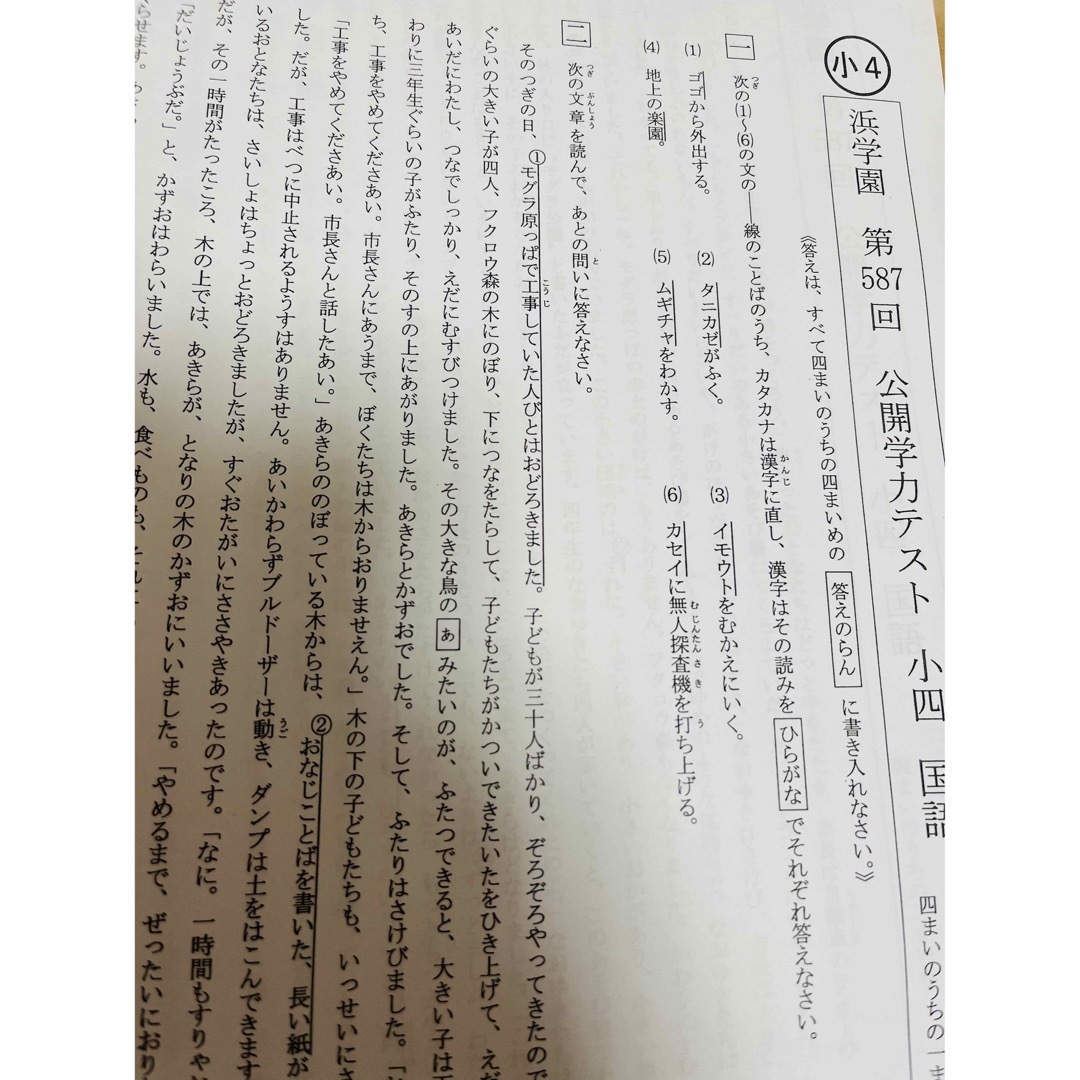 小4
浜学園 第587回 公開学力テスト 小四 国語
四まいのうちの一ま
《答えは、すべて四まいのうちの四まいめの 答えのらん に書き入れなさい。》
一 次の(1)~(6)の文の――線のことばのうち、カタカナは漢字に直し、漢字はその読みを ひらがな でそれぞれ答えなさい。
(1) ゴゴから外出する。 (2) タニカゼがふく。 (3) イモウトをむかえにいく。
(4) 地上の楽園。 (5) ムギチャをわかす。 (6) カセイに無人探査機を打ち上げる。
二 次の文章を読んで、あとの問いに答えなさい。
そのつぎの日、①モグラ原っぱで工事していた人びとはおどろきました。子どもが三十人ばかり、ぞろぞろやってきたので
ぐらいの大きい子が四人、フクロウ森の木にのぼり、下につなをたらして、子どもたちがかついできたいたをひき上げて、えだ
あいだにわたし、つなでしっかり、えだにむすびつけました。その大きな鳥の あ みたいのが、ふたつできると、大きい子は
わりに三年生ぐらいの子がふたり、そのすの上にあがりました。あきらとかずおでした。そして、ふたりはさけびました。
ち、工事をやめてくださあい。市長さんにあうまで、ぼくたちは木からおりませえん。」木の下の子どもたちも、いっせいにさ
「工事をやめてくださあい。市長さんと話したあい。」あきらののぼっている木からは、②おなじことばを書いた、長い紙が
した。だが、工事はべつに中止されるようすはありません。あいかわらずブルドーザーは動き、ダンプは土をはこんできます
いるおとなたちは、さいしょはちょっとおどろきましたが、すぐおたがいにささやきあったのです。「なに。一時間もすりゃ
だが、その一時間がたったころ、木の上では、あきらが、となりの木のかずおにいいました。「やめるまで、ぜったいにおり
「だいじょうぶだ。」と、かずおはわらいました。水も、食べものも、
らせます。